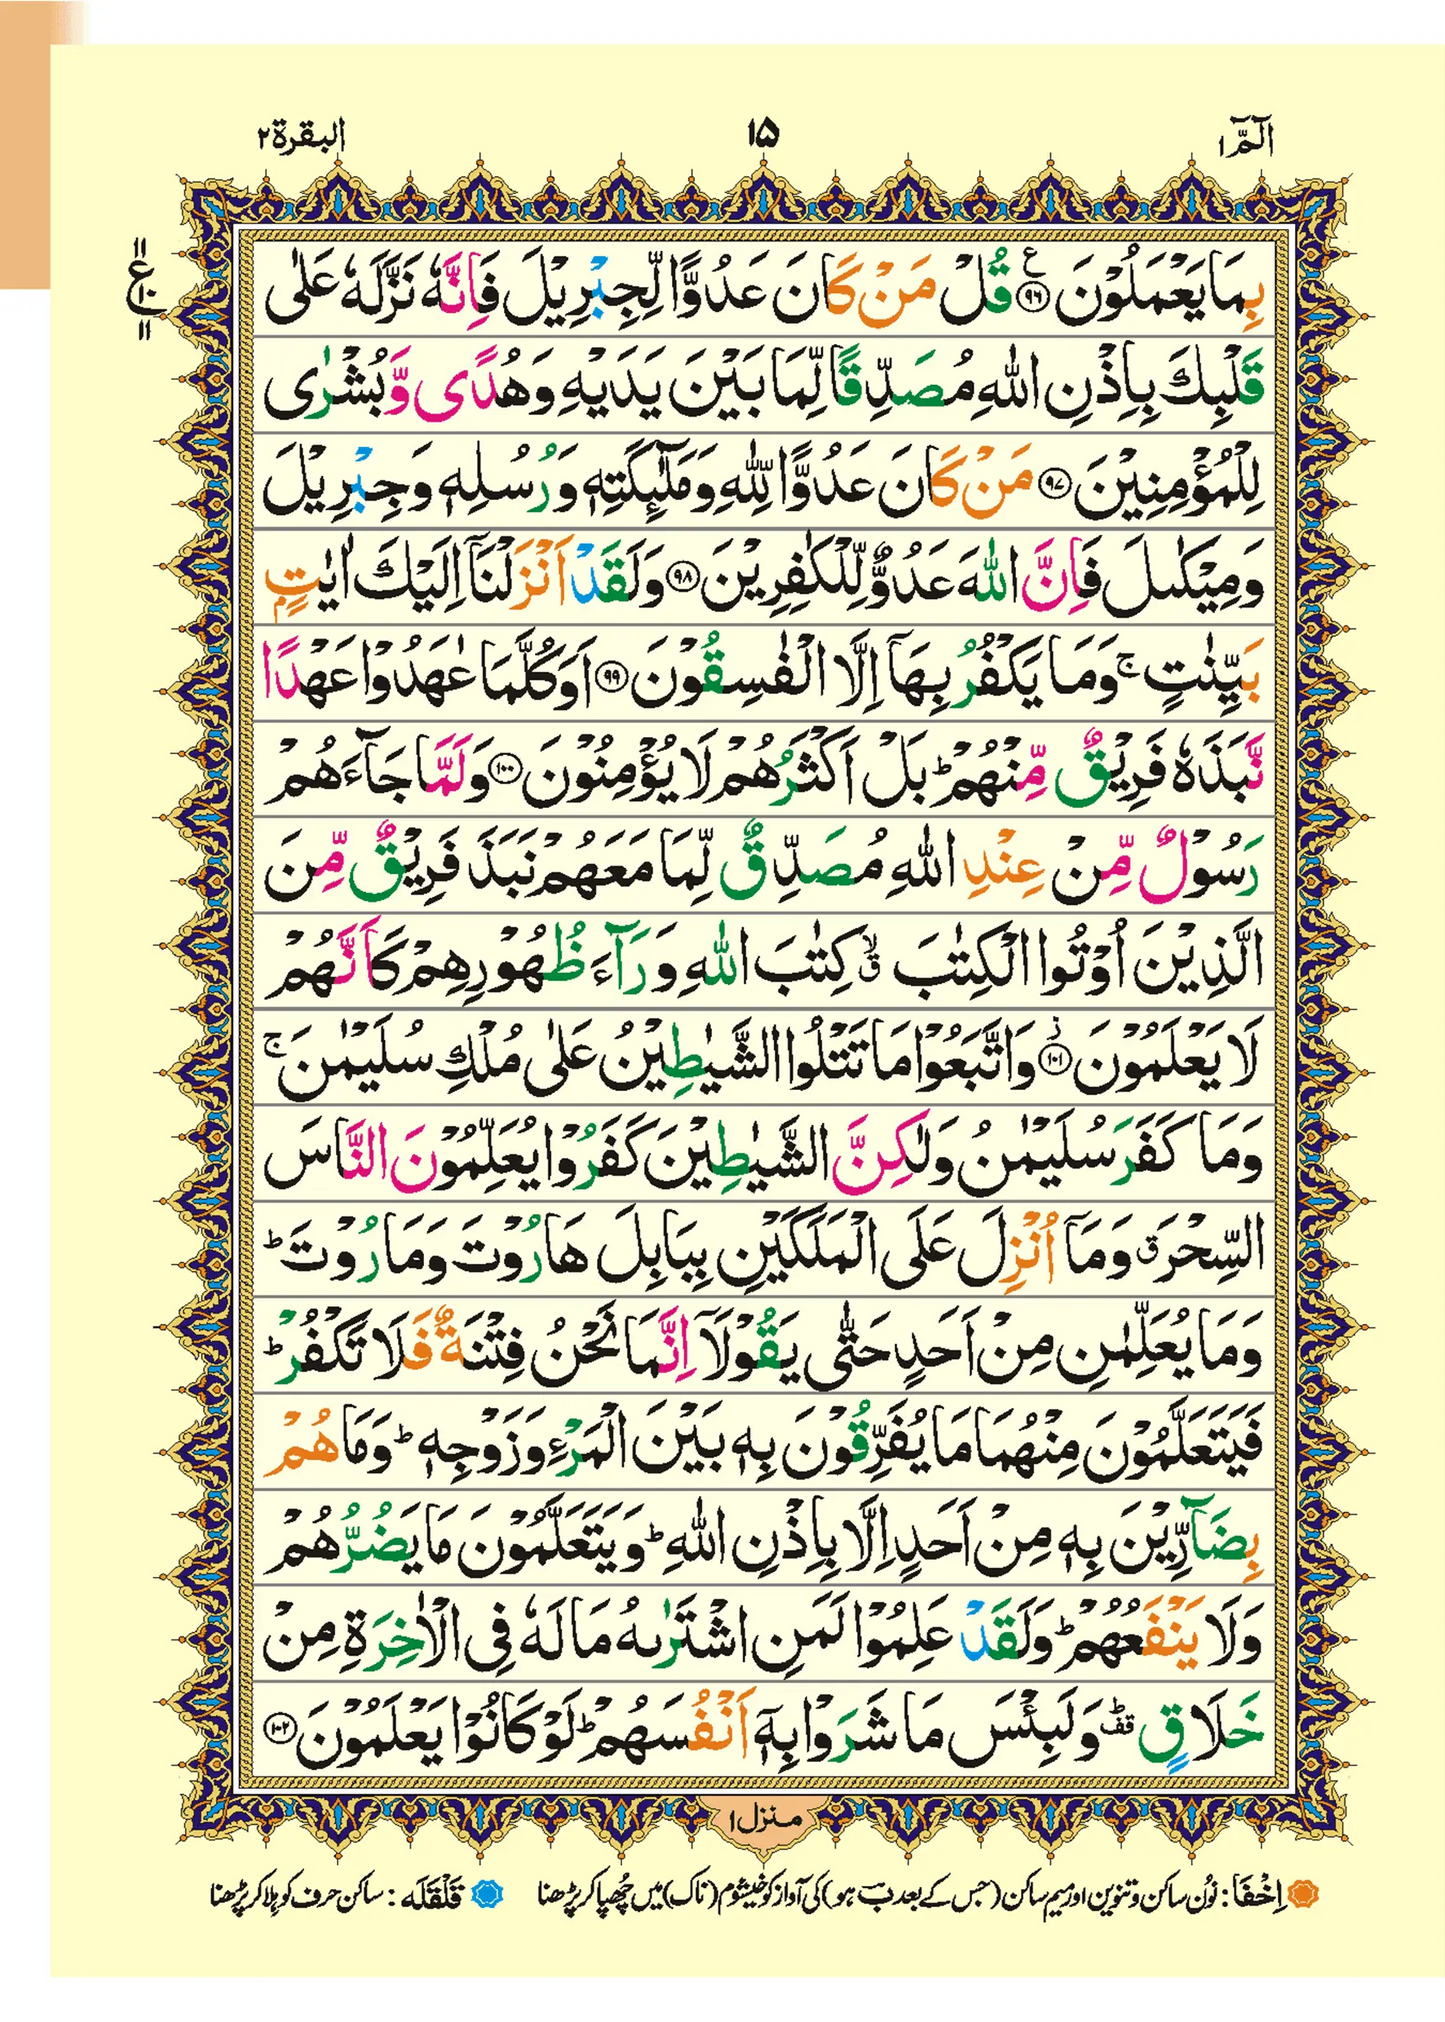 الٓمّٓ ۱
۱۵
البقرة ۲
بِمَا يَعْمَلُوْنَ ﴿۹۶﴾ؑ قُلْ مَنْ كَانَ عَدُوًّا لِّجِبْرِيْلَ فَاِنَّهٗ نَزَّلَهٗ عَلٰى
قَلْبِكَ بِاِذْنِ اللّٰهِ مُصَدِّقًا لِّمَا بَيْنَ يَدَيْهِ وَهُدًى وَّبُشْرٰى
لِلْمُؤْمِنِيْنَ ﴿۹۷﴾ مَنْ كَانَ عَدُوًّا لِّلّٰهِ وَمَلٰٓئِكَتِهٖ وَرُسُلِهٖ وَجِبْرِيْلَ
وَمِيْكٰىلَ فَاِنَّ اللّٰهَ عَدُوٌّ لِّلْكٰفِرِيْنَ ﴿۹۸﴾ وَلَقَدْ اَنْزَلْنَاۤ اِلَيْكَ اٰيٰتٍۭ
بَيِّنٰتٍ ۚ وَمَا يَكْفُرُ بِهَاۤ اِلَّا الْفٰسِقُوْنَ ﴿۹۹﴾ اَوَكُلَّمَا عٰهَدُوْا عَهْدًا
نَّبَذَهٗ فَرِيْقٌ مِّنْهُمْ ؕ بَلْ اَكْثَرُهُمْ لَا يُؤْمِنُوْنَ ﴿۱۰۰﴾ وَلَمَّا جَآءَهُمْ
رَسُوْلٌ مِّنْ عِنْدِ اللّٰهِ مُصَدِّقٌ لِّمَا مَعَهُمْ نَبَذَ فَرِيْقٌ مِّنَ
الَّذِيْنَ اُوْتُوا الْكِتٰبَ ۙۗ كِتٰبَ اللّٰهِ وَرَآءَ ظُهُوْرِهِمْ كَاَنَّهُمْ
لَا يَعْلَمُوْنَ ﴿۱۰۱﴾ؗ وَاتَّبَعُوْا مَا تَتْلُوا الشَّيٰطِيْنُ عَلٰى مُلْكِ سُلَيْمٰنَ ۚ
وَمَا كَفَرَ سُلَيْمٰنُ وَلٰكِنَّ الشَّيٰطِيْنَ كَفَرُوْا يُعَلِّمُوْنَ النَّاسَ
السِّحْرَ ۗ وَمَاۤ اُنْزِلَ عَلَى الْمَلَكَيْنِ بِبَابِلَ هَارُوْتَ وَمَارُوْتَ ؕ
وَمَا يُعَلِّمٰنِ مِنْ اَحَدٍ حَتّٰى يَقُوْلَاۤ اِنَّمَا نَحْنُ فِتْنَةٌ فَلَا تَكْفُرْ ؕ
فَيَتَعَلَّمُوْنَ مِنْهُمَا مَا يُفَرِّقُوْنَ بِهٖ بَيْنَ الْمَرْءِ وَزَوْجِهٖ ؕ وَمَا هُمْ
بِضَآرِّيْنَ بِهٖ مِنْ اَحَدٍ اِلَّا بِاِذْنِ اللّٰهِ ؕ وَيَتَعَلَّمُوْنَ مَا يَضُرُّهُمْ
وَلَا يَنْفَعُهُمْ ؕ وَلَقَدْ عَلِمُوْا لَمَنِ اشْتَرٰىهُ مَا لَهٗ فِى الْاٰخِرَةِ مِنْ
خَلَاقٍ ؕ قف وَلَبِئْسَ مَا شَرَوْا بِهٖۤ اَنْفُسَهُمْ ؕ لَوْ كَانُوْا يَعْلَمُوْنَ ﴿۱۰۲﴾
منزل ۱
اِخْفَا: نُون ساکن و تنوین اور میم ساکن (جس کے بعد بؔ ہو) کی آواز کو خَیشُوم (ناک) میں چُھپا کر پڑھنا قَلْقَلَہ: ساکن حرف کو ہِلا کر پڑھنا